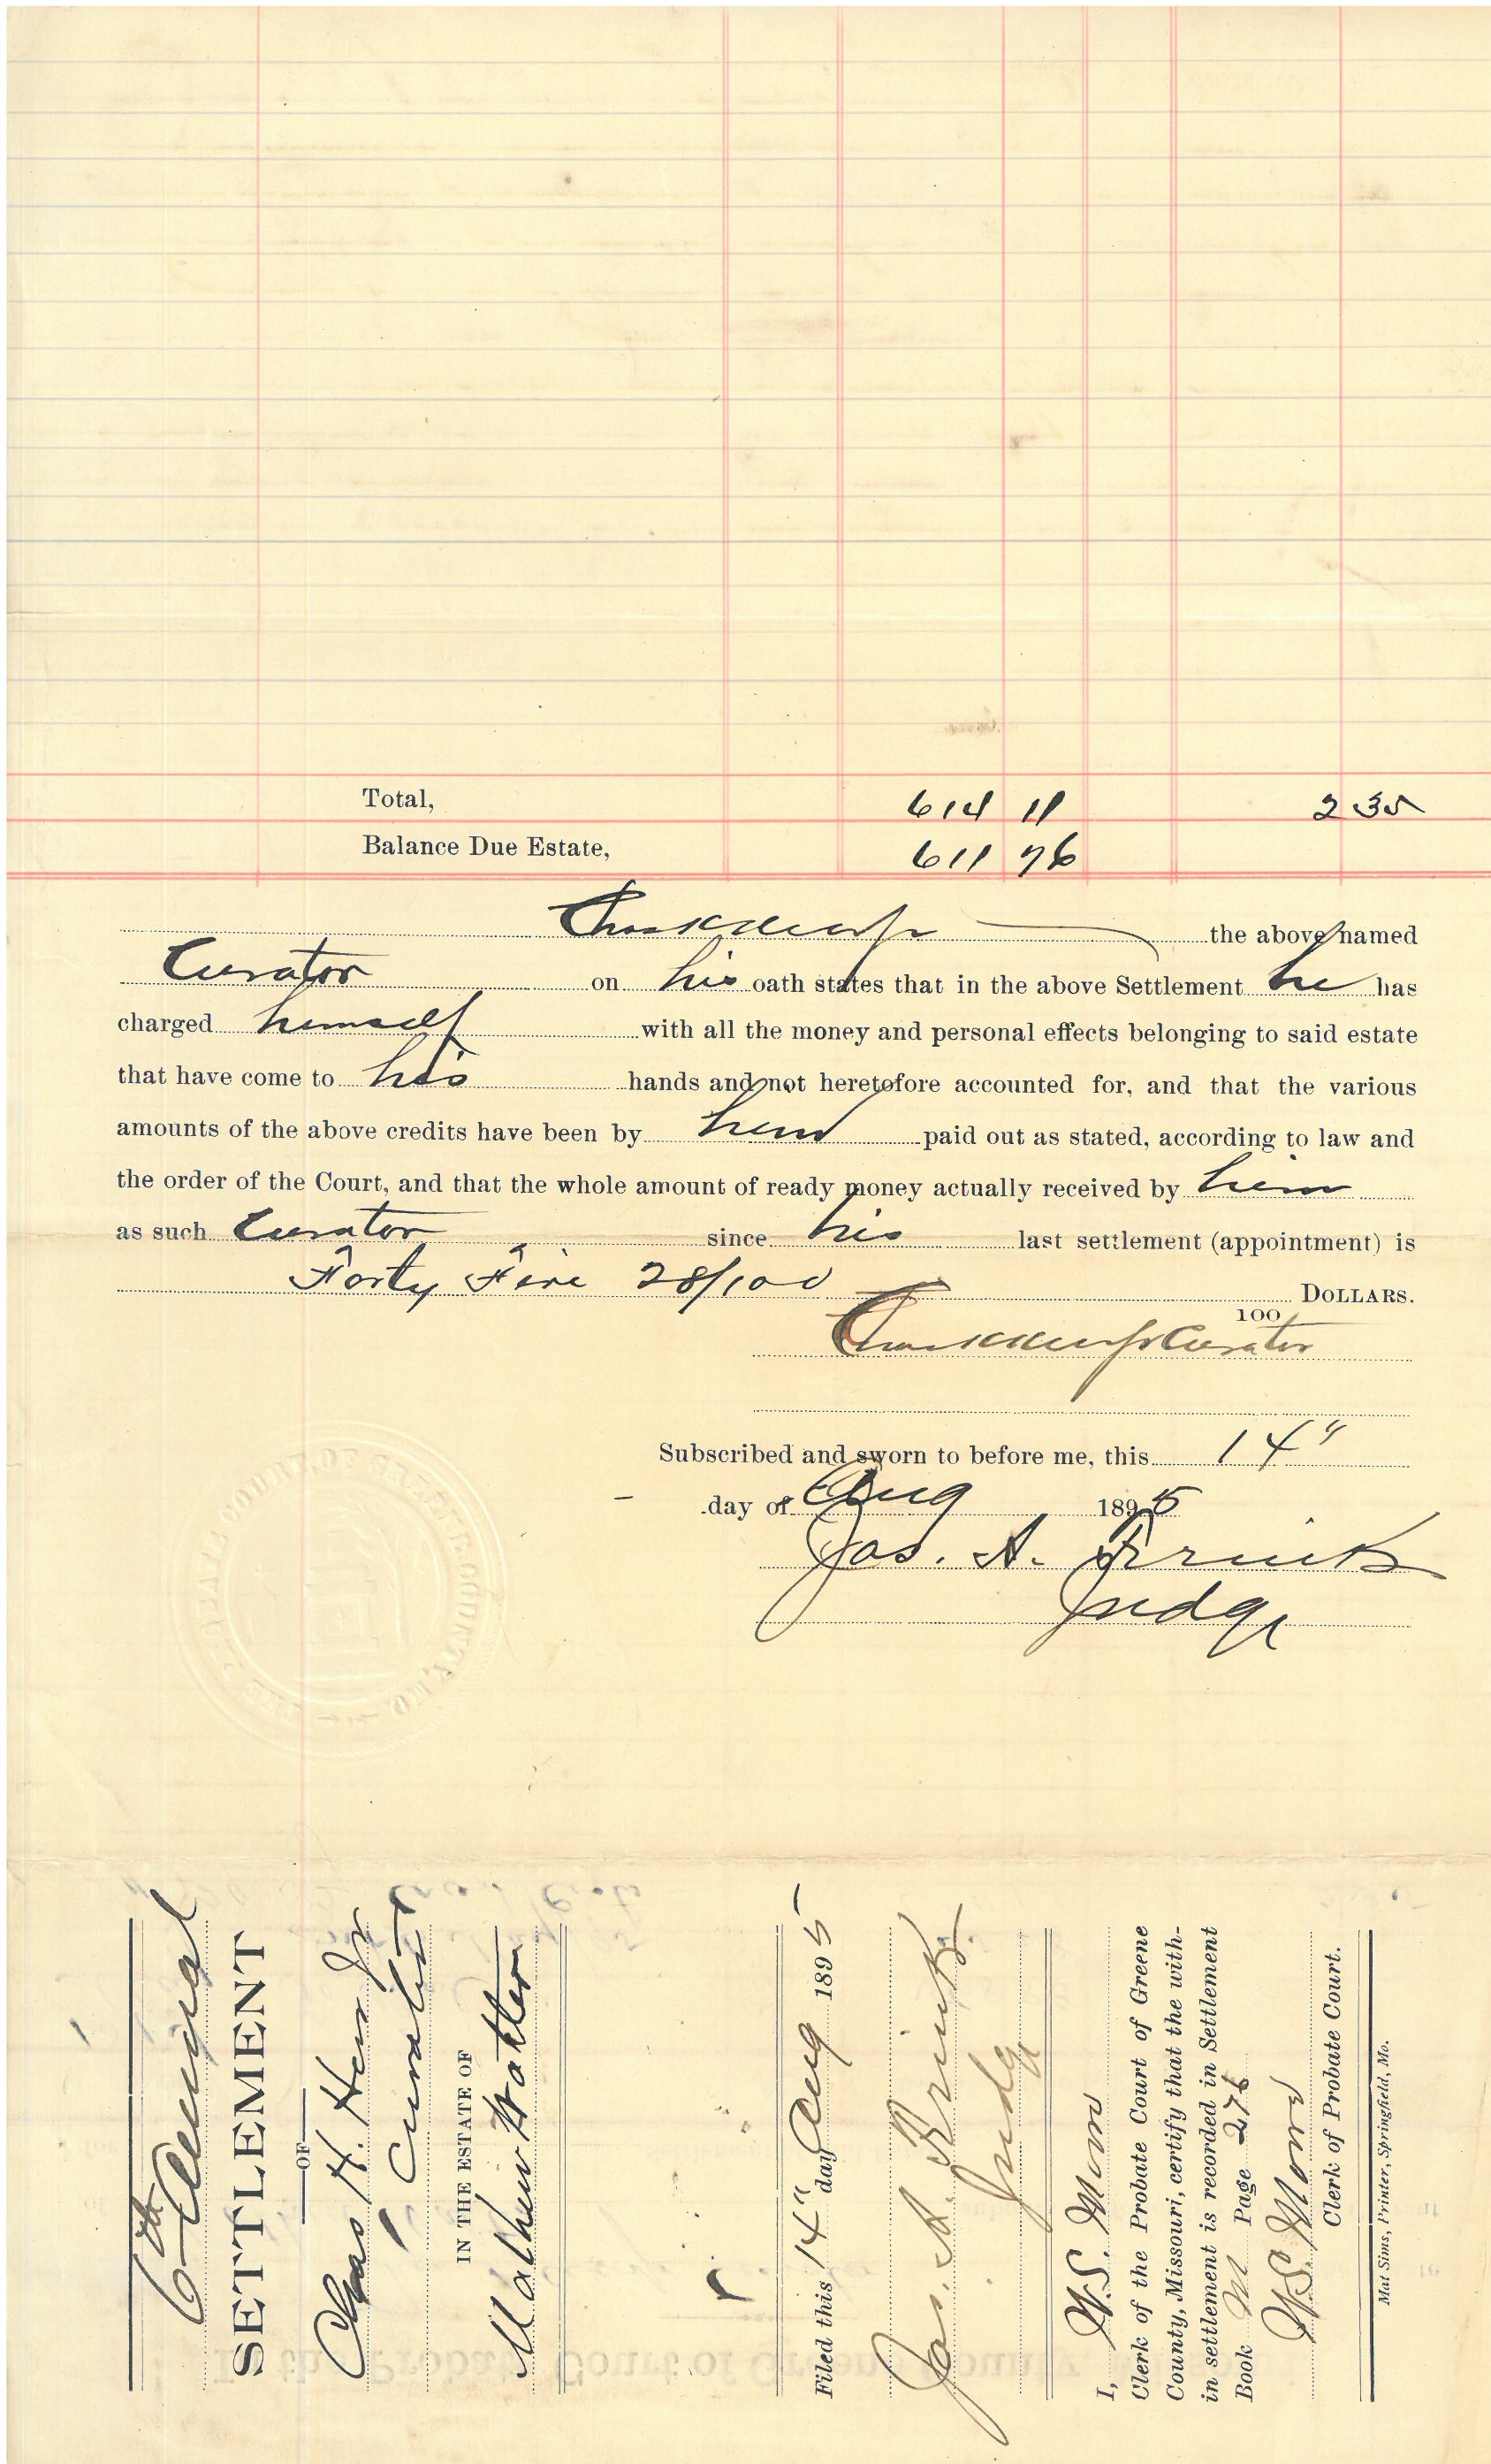 Total, 614 11 2 35
Balance Due Estate, 611 76
the above named
Curator on his oath states that in the above Settlement he has
charged himself with all the money and personal effects belonging to said estate
that have come to his hands and not heretofore accounted for, and that the various
amounts of the above credits have been by him paid out as stated, according to law and
the order of the Court, and that the whole amount of ready money actually received by him
as such Curator since his last settlement (appointment) is
Forty Five 28/100 DOLLARS.
100
Curator
Subscribed and sworn to before me, this 14"
day of Aug 1895
Jas. A.
Judge
PROBATE COURT OF GREENE COUNTY, MO.
6th Annual
SETTLEMENT
OF
Chas H. Jr
Curator
IN THE ESTATE OF
Mathew
Filed this 14" day Aug 1895
Jas. A.
Judge
I, W.S.
Clerk of the Probate Court of Greene
County, Missouri, certify that the with-
in settlement is recorded in Settlement
Book M Page 276
W.S.
Clerk of Probate Court.
Mat Sims, Printer, Springfield, Mo.